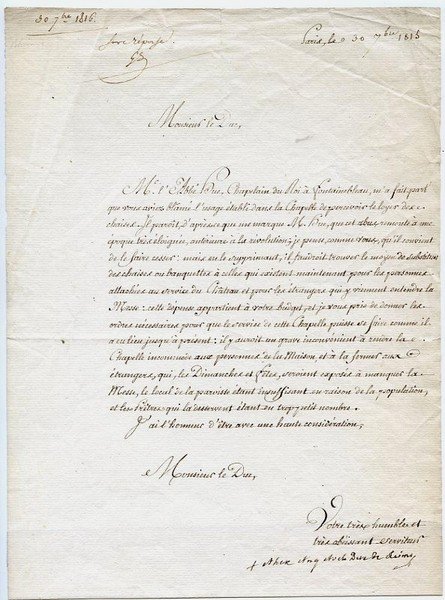 30 7bre 1816.
Paris, le 30 7bre 1815
Sans réponse.
Monsieur le Duc,
Mr. l'Abbé Buc, Chapelain du Roi, à Fontainebleau, m'a fait part
que vous aviez blâmé l'usage établi dans la Chapelle de percevoir le loyer des
chaises. Il paroit, d'après ce que me marque M. Buc, que cet abus remonte à une
époque très éloignée, antérieure à la révolution; je pense, comme vous, qu'il convient
de le faire cesser: mais en le supprimant, il faudroit trouver le moyen de substituer
des chaises ou banquettes à celles qui existent maintenant pour les personnes
attachées au service du Château et pour les étrangers qui y viennent entendre la
Messe: cette dépense appartient à votre budget, et je vous prie de donner les
ordres nécessaires pour que le service de cette Chapelle puisse se faire comme il
a eu lieu jusqu'à présent; il y auroit un grave inconvénient à rendre la
Chapelle incommode aux personnes de la Maison, et à la fermer aux
étrangers, qui, les Dimanches et Fêtes, seroient exposés à manquer la
Messe, le local de la paroisse étant insuffisant en raison de la population,
et les Prêtres qui la desservent étant en trop petit nombre.
J'ai l'honneur d'être avec une haute considération,
Monsieur le Duc,
Votre très humble et
très obéissant serviteur
+ Alex Ang Arch Duc de Reims